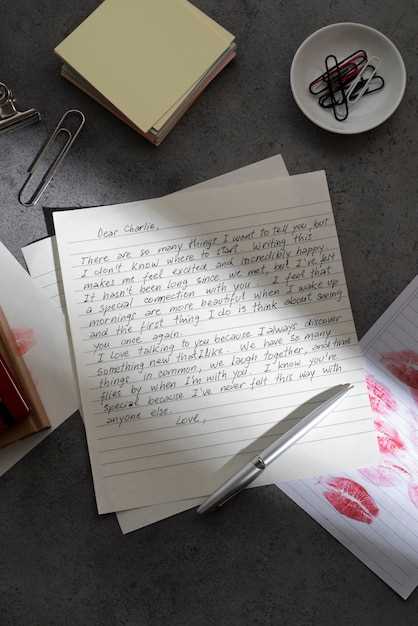 Dear Charlie,
There are so many things I want to tell you, but
I don't know where to start. Writing this
makes me feel excited and incredibly happy.
It hasn't been long since we met, but I've felt
a special connection with you. I feel that
mornings are more beautiful when I wake up
and the first thing I do is think about seeing
you once again.
I love talking to you because I always discover
something new that I like. We have so many
things in common, we laugh together, and time
flies by when I'm with you. I know you're
special because I've never felt this way with
anyone else.
Love,